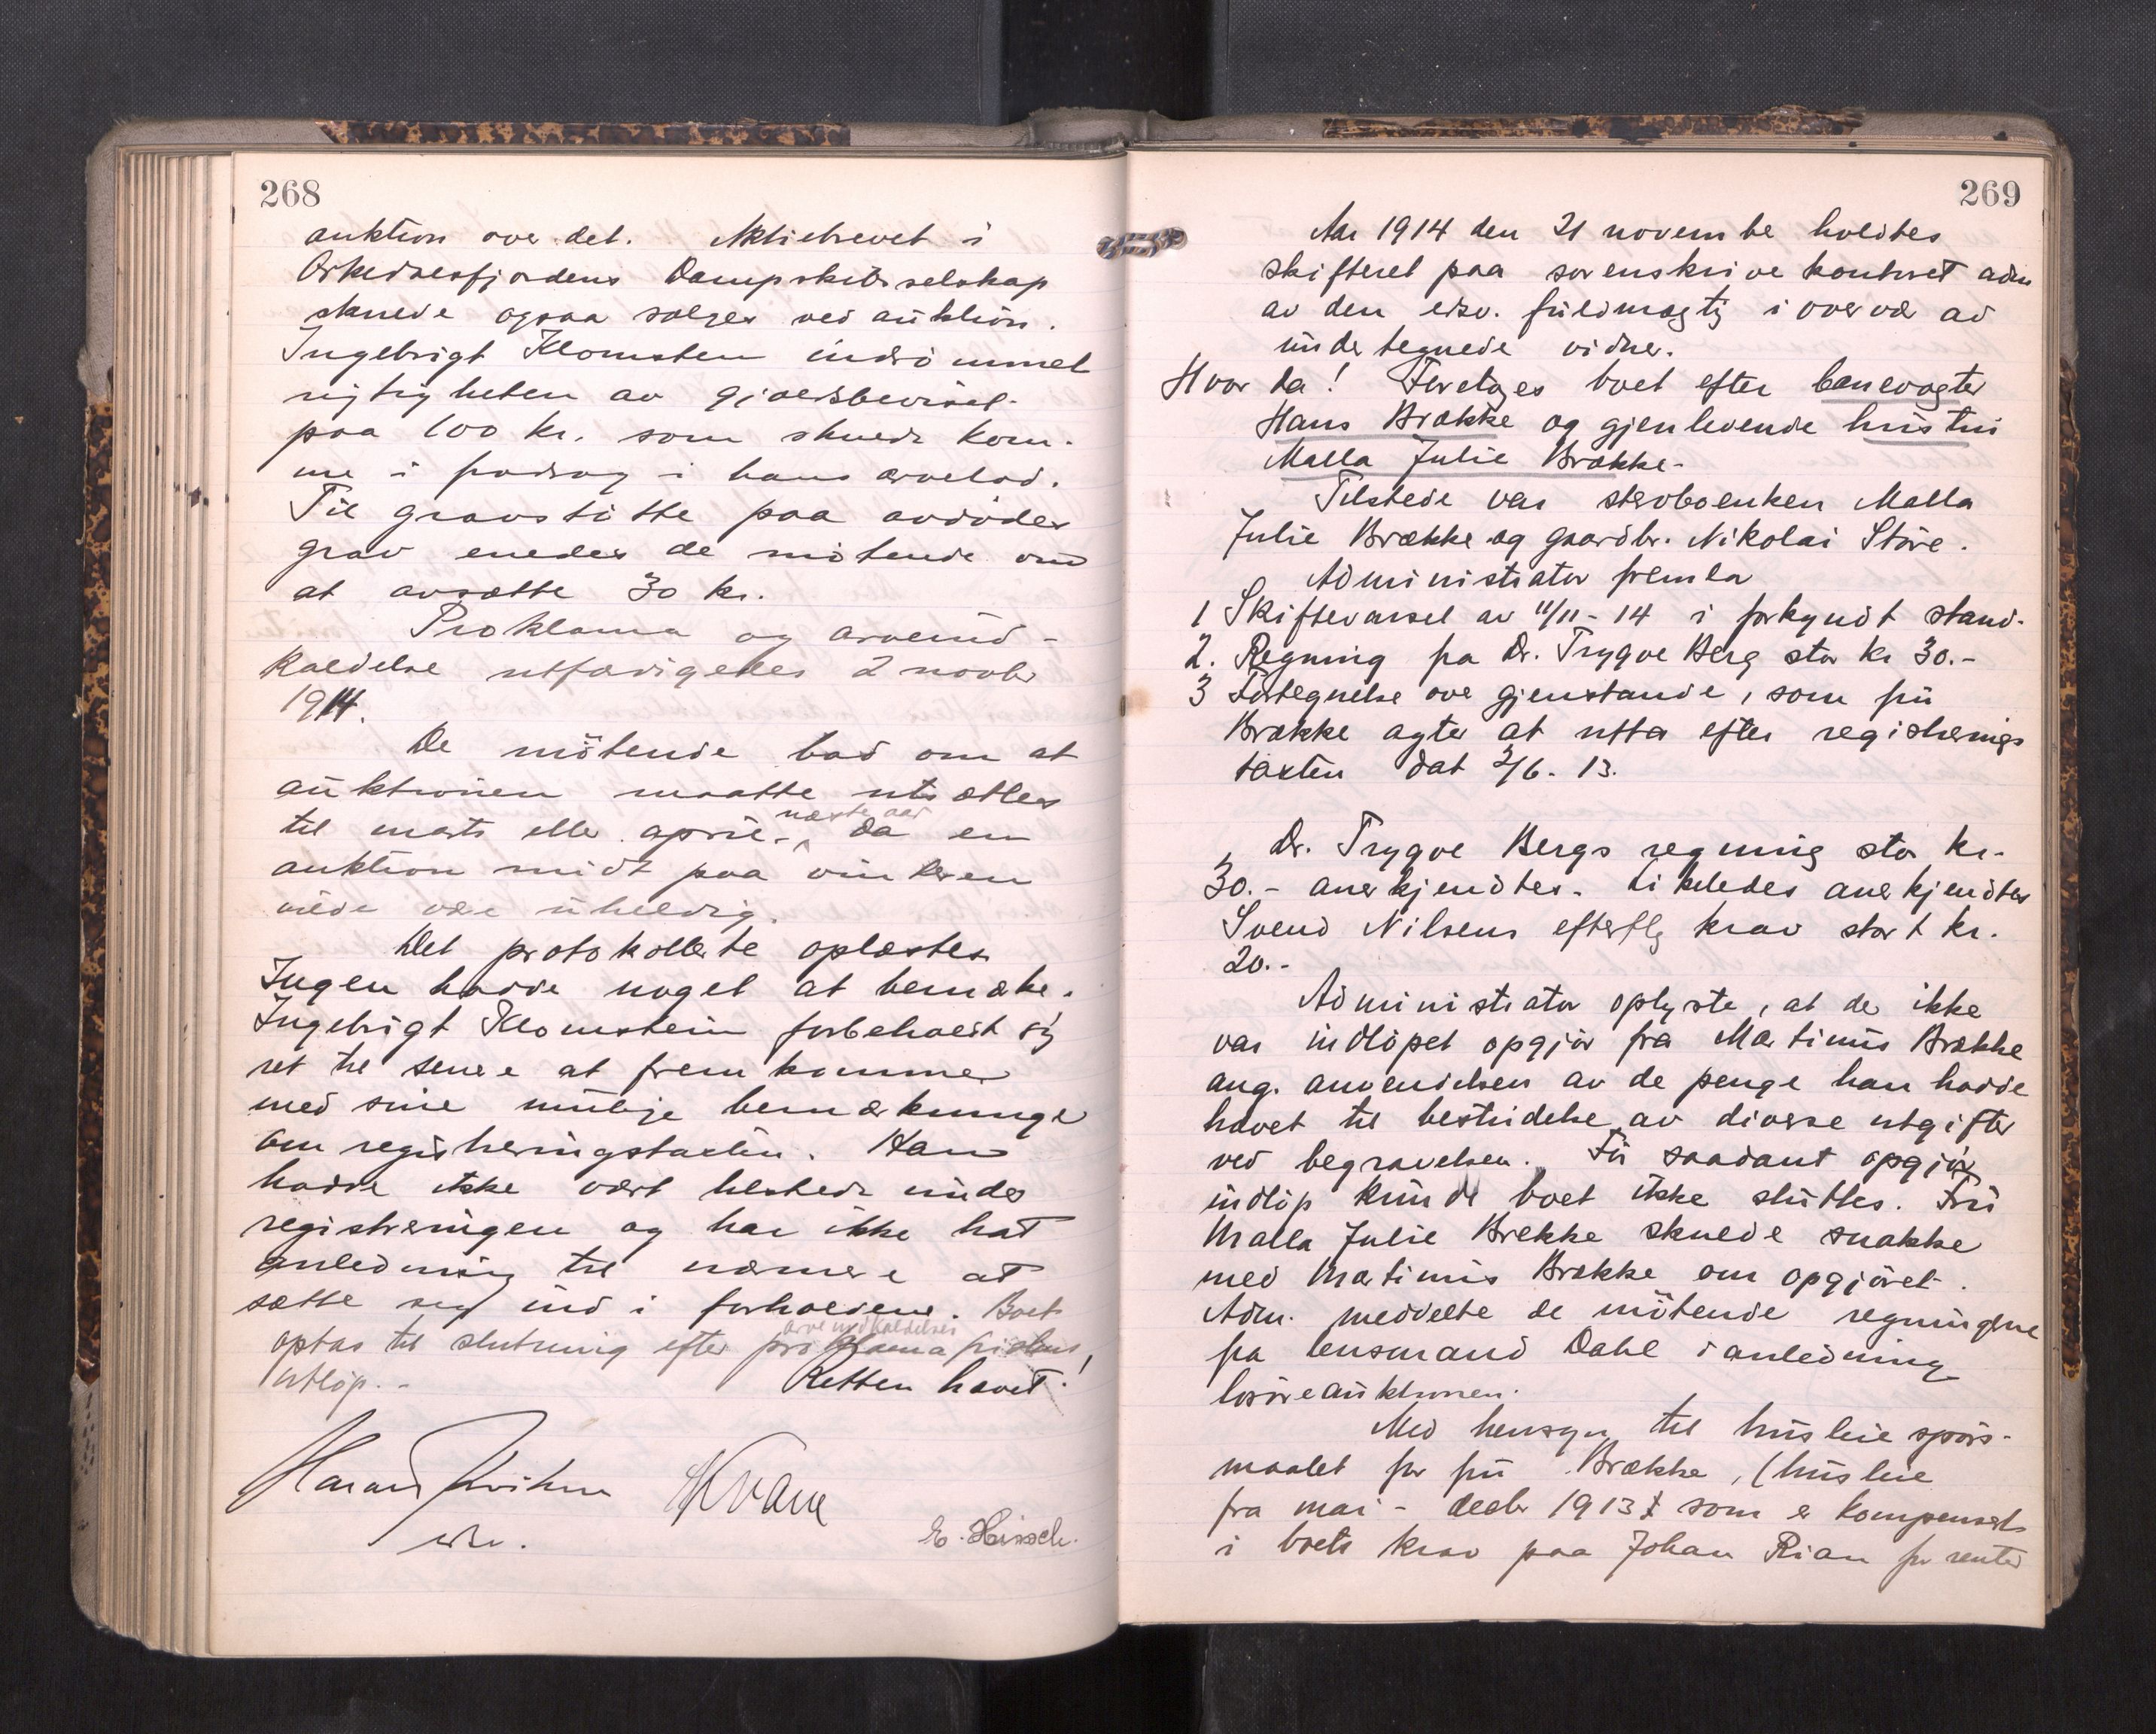 268
auktion over det. Aktiebrevet i
Orkedalsfjordens Dampskibsselskap
skulde ogsaa sælges ved auktion.
Ingebrigt Klomsten indrömmet
rigtigheten av gjældsbeviset
paa 100 kr. som skulde kom-
me i fradrag i hans arvelod.
Til gravstötte paa avdödes
grav enedes de mötende om
at avsætte 30 kr.
Proklama og arveind-
kaldelse utfærdigedes 2 novbr
1914.
De mötende bad om at
auktionen maatte utsættes
til marts eller april næste aar, da en
auktion midt paa vinteren
vilde være uheldig.
Det protokollerte oplæstes
Ingen hadde noget at bemærke.
Ingebrigt Klomsten forbeholdt sig
ret til senere at fremkomme
med sine mulige bemærkninger
om registreringstaxten. Han
hadde ikke vært tilstede under
registreringen og har ikke hat
anledning til nærmere at
sætte sig ind i forholdene. Boet
optas til slutning efter proklama
arveindkaldelses
fristens
utløp.- Retten hævet!
Kvam
E. Hirsch.
269
Aar 1914 den 21 november holdtes
skifteret paa sorenskriverkontoret adm
av den edsv. fuldmægtig i overvær av
undertegnede vidner.
Hvorda! Foretoges boet efter banevogter
Hans Brække og gjenlevende hustru
Malla Julie Brække.
Tilstede var stervboenken Malla
Julie Brække og gaardbr. Nikolai Störe.
Administrator fremla
1 Skiftevarsel av 11/11-14 i forkyndt stand.
2. Regning fra Dr. Trygve Berg stor kr 30.-
3 Fortegnelse over gjenstande, som fru
Brække agter at utta efter registrerings
taxten dat 2/6. 13.
Dr. Trygve Bergs regning stor kr.
30.- anerkjendtes. Likeledes anerkjendtes
Svend Nilsens efterflg krav stort kr.
20.-
Administrator oplyste, at der ikke
var indlöpet opgjör fra Martinus Brække
ang. anvendelsen av de penge han hadde
hævet til bestridelse av diverse utgifter
ved begravelsen. För saadant opgjör
indlöp kunde boet ikke sluttes. Fru
Malla Julie Brekke skulde snakke
med Martinus Brække om opgjöret.
Adm. meddelte de mötende regningene
fra lensmand Dahl i anledning
lösöreauktionen.
Med hensyn til husleiespörs-
maalet for fru Brække, (husleie
fra mai - decbr 1913) som er kompensert
i boets krav paa Johan Rian for renter